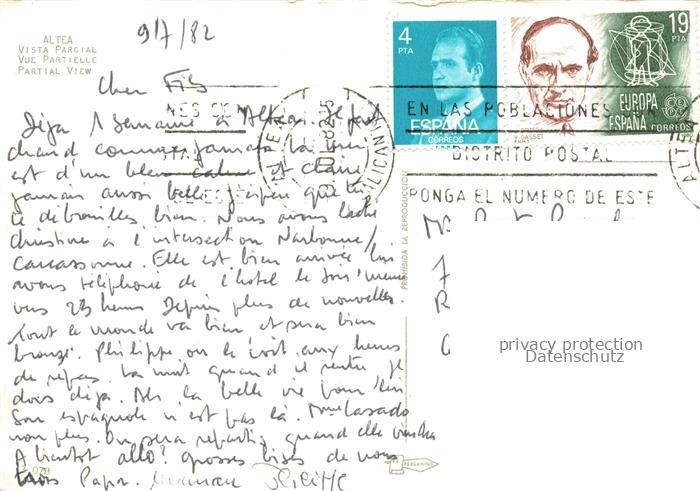 ALTEA
VISTA PARCIAL
VUE PARTIELLE
PARTIAL VIEW
9/7/82
Cher Fils
Deja 1 Semaine à Altea. Il fait
chaud comme jamais la mer
est d'un bleu calme et claire
jamais aussi belle. J'espère que tu
te débrouilles bien. Nous avons laché
christine à l'intersection Narbonne/
Carcassonne. Elle est bien arrivée lui
avons téléphoné de l'hotel le soir même
vers 23 heures Depuis plus de nouvelles.
Tout le monde va bien et sera bien
bronzé. Philippe on le voit aux heures
de repas. La nuit quand il rentre je
dors déja. Ah la belle vie pour lui
Son espagnole n'est pas là. Mme
non plus. On sera reparti quand elle viendra
A bientot allo? grosses bises de nous
trois Papa. Maman
4
PTA
ESPAÑA
CORREOS
19
PTA
EUROPA
ESPAÑA
CORREOS
GASSET
EN LAS POBLACIONES
DISTRITO POSTAL
PONGA EL NUMERO DE ESTE
ALTEA
(ALICANTE)
PROHIBIDA LA REPRODUCCION
PERGAMINO
privacy protection
Datenschutz